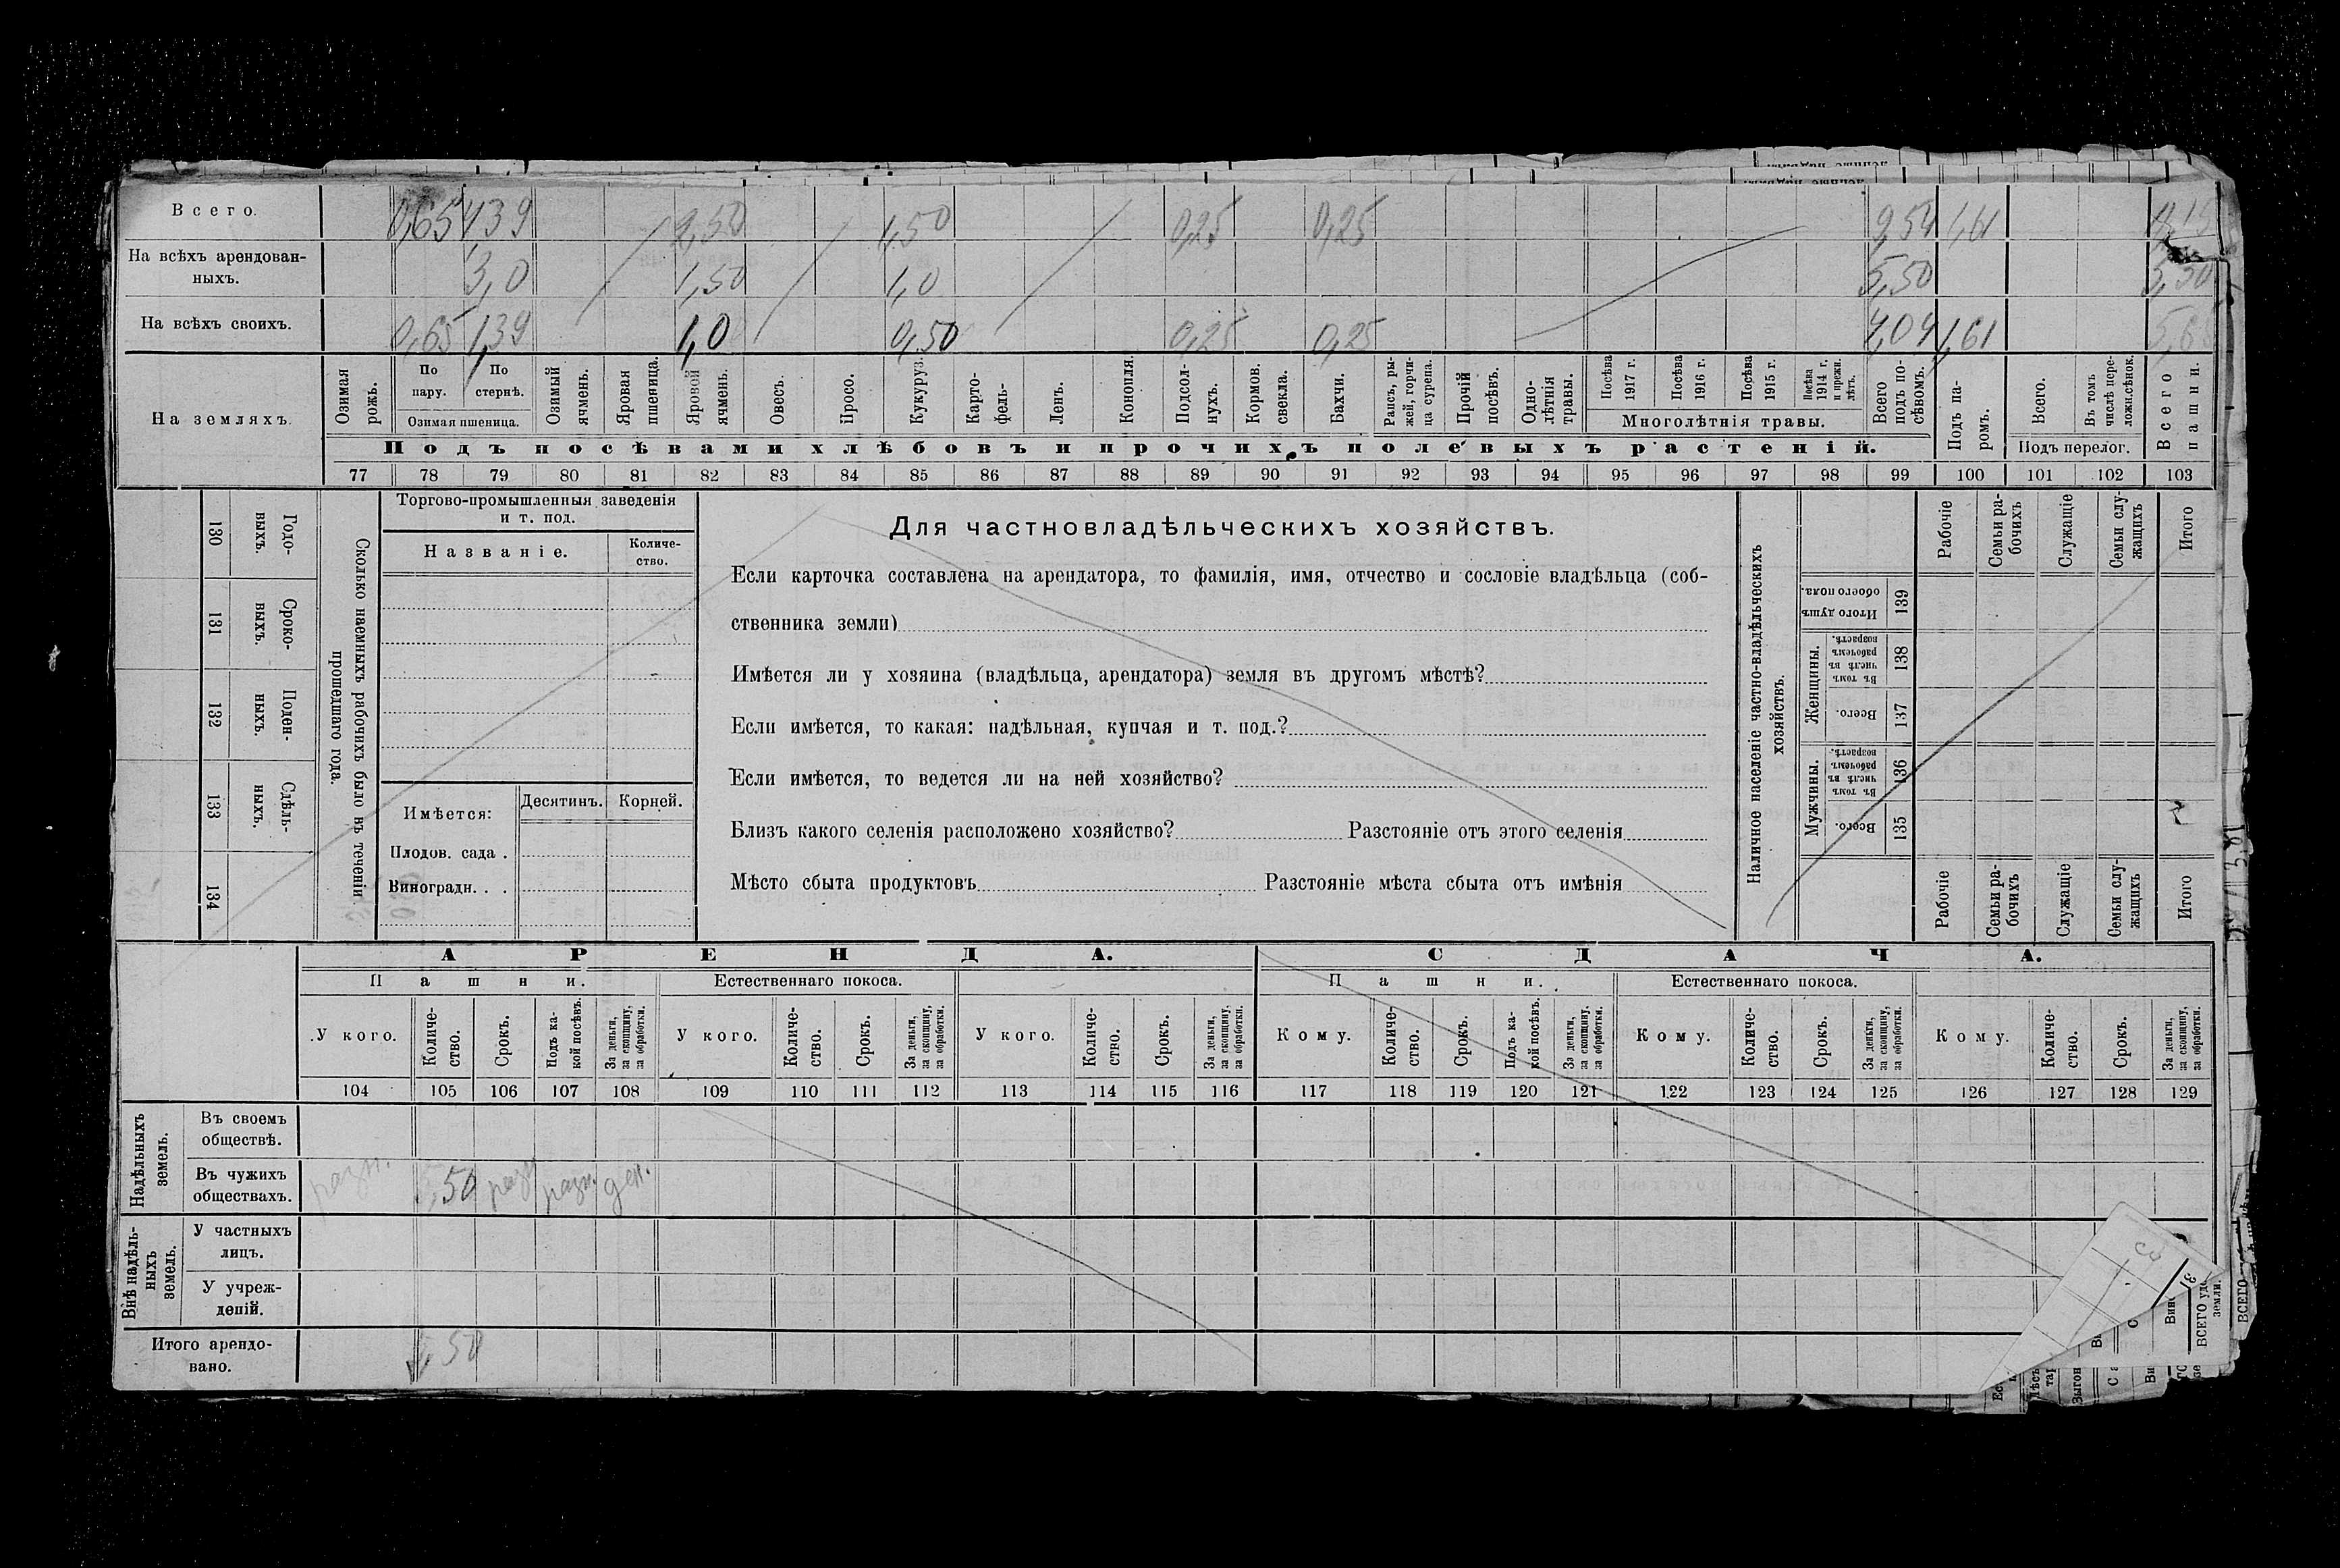 Всего. 0,65 4,39 2,50 1,50 0,25 0,25 9,54 1,61 11,15
На всѣхъ арендован-
ныхъ. 3,0 1,50 1,0 5,50 5,50
На всѣхъ своихъ. 0,65 1,39 1,0 0,50 0,25 0,25 4,04 1,61 5,65
На земляхъ.
Озимая рожь.
По пару.
По стернѣ.
Озимая пшеница.
Озимый ячмень.
Яровая пшеница.
Яровой ячмень.
Овесъ.
Просо.
Кукуруз.
Карто-
фель-
Ленъ.
Конопля.
Подсол-
нухъ.
Кормов. свекла.
Бахчи.
Рапсъ, ры-
жей, горчи-
ца сурепа.
Прочій посѣвъ.
Одно-
лѣтнія травы.
Посѣва 1917 г.
Посѣва 1916 г.
Посѣва 1915 г.
Посѣва 1914 г. и прежн. лѣтъ.
Многолѣтнія травы.
Всего подъ по-
сѣвомъ.
Подъ па-
ромъ.
Всего.
Въ томъ числѣ пере-
ложн.сѣнок.
Подъ перелог.
Всего пашни.
Подъ посѣвами хлѣбовъ и прочихъ полевыхъ растеній.
77 78 79 80 81 82 83 84 85 86 87 88 89 90 91 92 93 94 95 96 97 98 99 100 101 102 103
130 Годо-
ныхъ.
131 Сроко-
ныхъ.
132 Поден-
ныхъ.
133 Сдѣль-
ныхъ.
134
Сколько наемныхъ рабочихъ было въ теченіи
прошедшаго года.
Торгово-промышленныя заведенія
и т. под.
Названіе. Количе-
ство.
Имѣется: Десятинъ. Корней.
Плодов. сада .
Виноградн. . .
Для частновладѣльческихъ хозяйствъ.
Если карточка составлена на арендатора, то фамилія, имя, отчество и сословіе владѣльца (соб-
ственника земли)
Имѣется ли у хозяина (владѣльца, арендатора) земля въ другомъ мѣстѣ?
Если имѣется, то какая: надѣльная, купчая и т. под.?
Если имѣется, то ведется ли на ней хозяйство?
Близъ какого селенія расположено хозяйство? Разстояніе отъ этого селенія
Мѣсто сбыта продуктовъ Разстояніе мѣста сбыта отъ имѣнія
Наличное населеніе частно-владѣльческихъ
хозяйствъ.
Рабочіе
Семьи ра-
бочихъ
Служащіе
Семьи слу-
жащихъ
Итого
Итого душъ обоего пола. 139
Женщины.
Въ томъ числѣ въ рабочемъ возрастѣ. 138
Всего. 137
Мужчины.
Въ томъ числѣ въ рабочемъ возрастѣ. 136
Всего. 135
Рабочіе
Семьи ра-
бочихъ
Служащіе
Семьи слу-
жащихъ
Итого
АРЕНДА. СДАЧА.
Пашни. Естественнаго покоса. Пашни. Естественнаго покоса.
У кого. Количе-
ство. Срокъ. Подъ ка-
кой посѣвъ. За деньги, за скопщину, за обработки.
У кого. Количе-
ство. Срокъ. За деньги, за скопщину, за обработки.
У кого. Количе-
ство. Срокъ. За деньги, за скопщину, за обработки.
Кому. Количе-
ство. Срокъ. Подъ ка-
кой посѣвъ. За деньги, за скопщину, за обработки.
Кому. Количе-
ство. Срокъ. За деньги, за скопщину, за обработки.
Кому. Количе-
ство. Срокъ. За деньги, за скопщину, за обработки.
104 105 106 107 108 109 110 111 112 113 114 115 116 117 118 119 120 121 122 123 124 125 126 127 128 129
Надѣльныхъ земель.
Въ своемъ
обществѣ.
Въ чужихъ
обществахъ. разн. 5,50 разн разн. ден.
Внѣ надѣль-
ныхъ земель.
У частныхъ
лицъ.
У учреж-
деній.
Итого арендо-
вано. 5,50